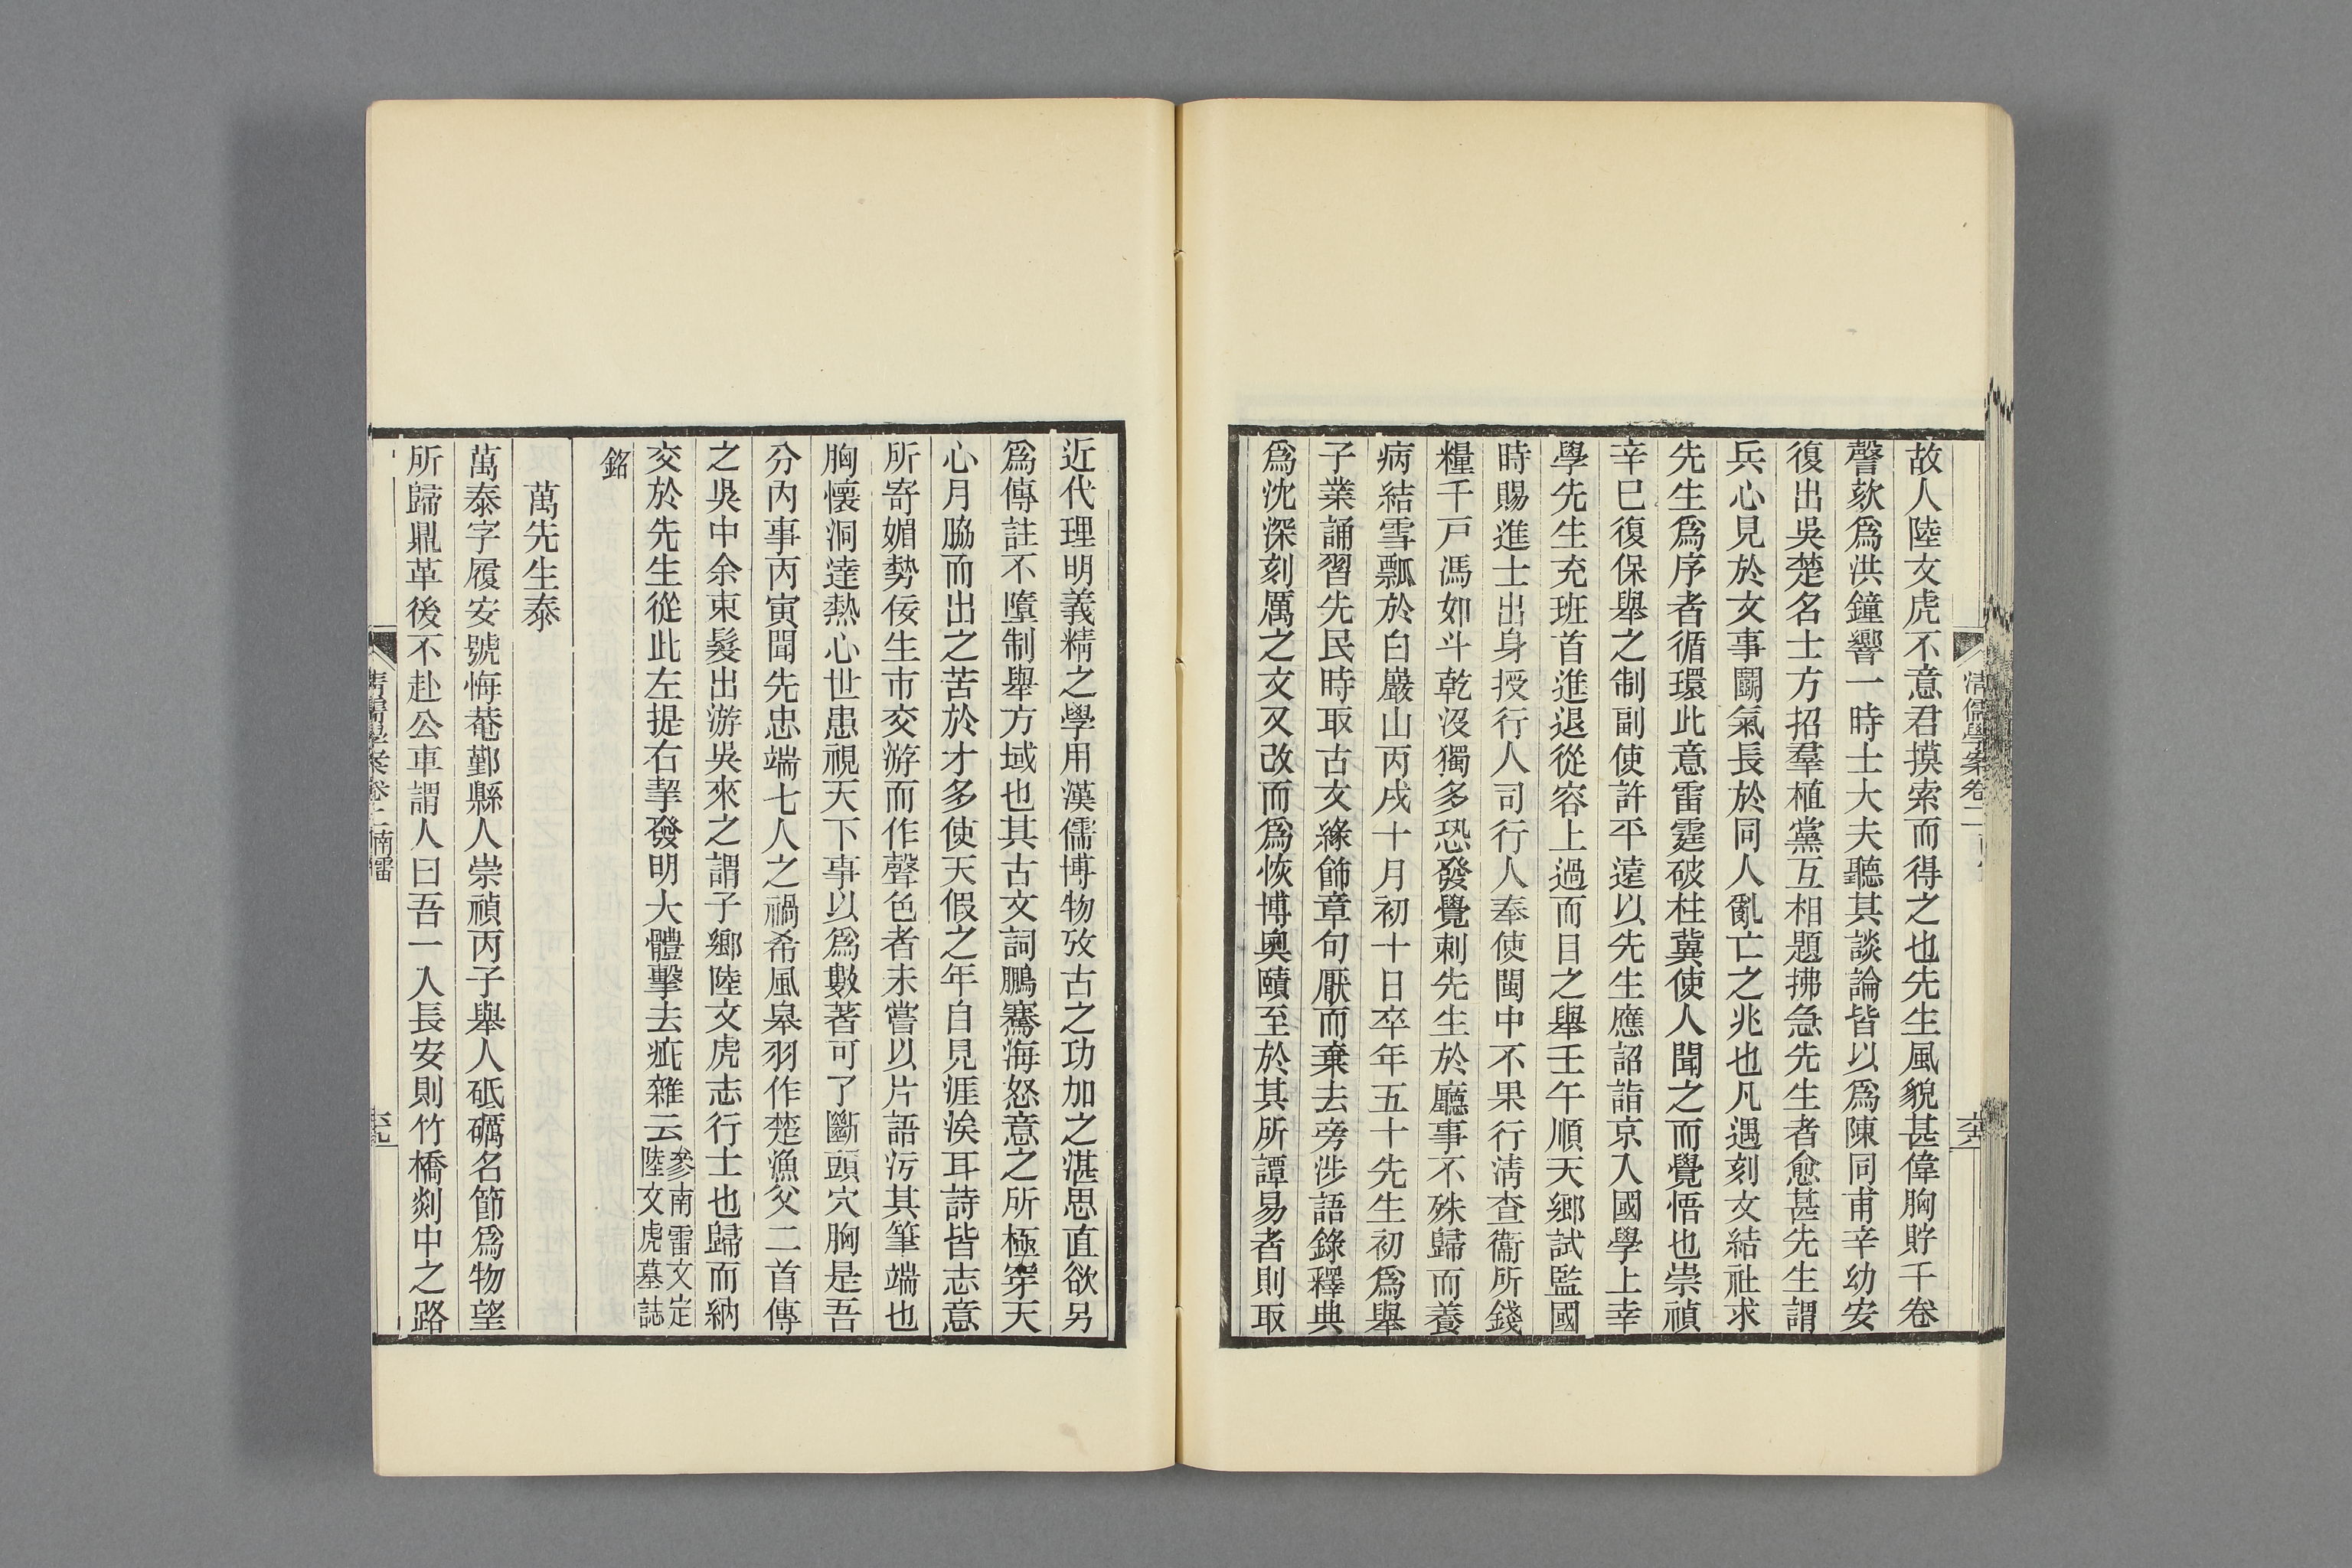 故人陸文虎不意君摸索而得之也先生風貌甚偉胸貯千卷
謦欬爲洪鐘響一時士大夫聽其談論皆以爲陳同甫辛幼安
復出吳楚名士方招羣植黨互相題拂急先生者愈甚先生謂
兵心見於文事鬭氣長於同人亂亡之兆也凡遇刻文結社求
先生爲序者循環此意雷霆破柱冀使人聞之而覺悟也崇禎
辛巳復保舉之制副使許平遠以先生應詔詣京入國學上幸
學先生充班首進退從容上過而目之舉壬午順天鄉試監國
時賜進士出身授行人司行人奉使閩中不果行淸查衞所錢
糧千戸馮如斗乾沒獨多恐發覺刺先生於廳事不殊歸而養
病結雪瓢於白巖山丙戌十月初十日卒年五十先生初爲舉
子業誦習先民時取古文緣飾章句厭而棄去旁涉語錄釋典
爲沈深刻厲之文又改而爲恢博奧賾至於其所譚易者則取
淸儒學案卷二
近代理明義精之學用漢儒博物攷古之功加之湛思直欲另
爲傳註不墮制舉方域也其古文詞鵬騫海怒意之所極穿天
心月脇而出之苦於才多使天假之年自見涯涘耳詩皆志意
所寄媚勢佞生市交游而作聲色者未嘗以片語污其筆端也
胸懷洞達熱心世患視天下事以爲數著可了斷頭穴胸是吾
分內事丙寅聞先忠端七人之禍希風皋羽作楚漁父二首傳
之吳中余束髮出游吳來之謂子鄉陸文虎志行士也歸而納
交於先生從此左提右挈發明大體擊去疵雜云參南雷文定
陸文虎墓誌
銘
萬先生泰
萬泰字履安號悔菴鄞縣人崇禎丙子舉人砥礪名節爲物望
所歸鼎革後不赴公車謂人曰吾一人長安則竹橋剡中之路
淸儒學案卷二 南雷